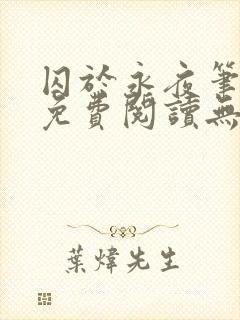 囚於永夜筆
免費閱讀無
葉煒先生